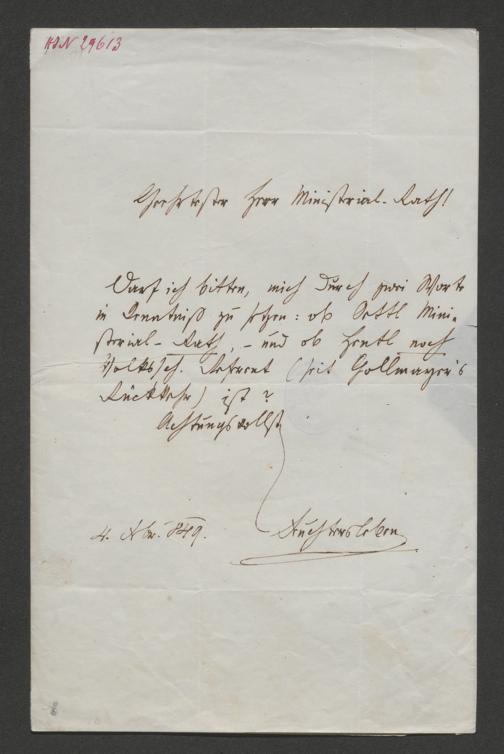 H.I.N. 29613
Geehrtester Herr Ministerial-Rath!
Darf ich bitten, mich durch zwei Worte
in Kenntniß zu setzen: ob Mini-
sterial-Rath, - und ob noch
Volkssch. Referent (seit Gollmayer's
Rückkehr) ist?
Achtungsvollst
4. Nbr. 849. Feuchtersleben